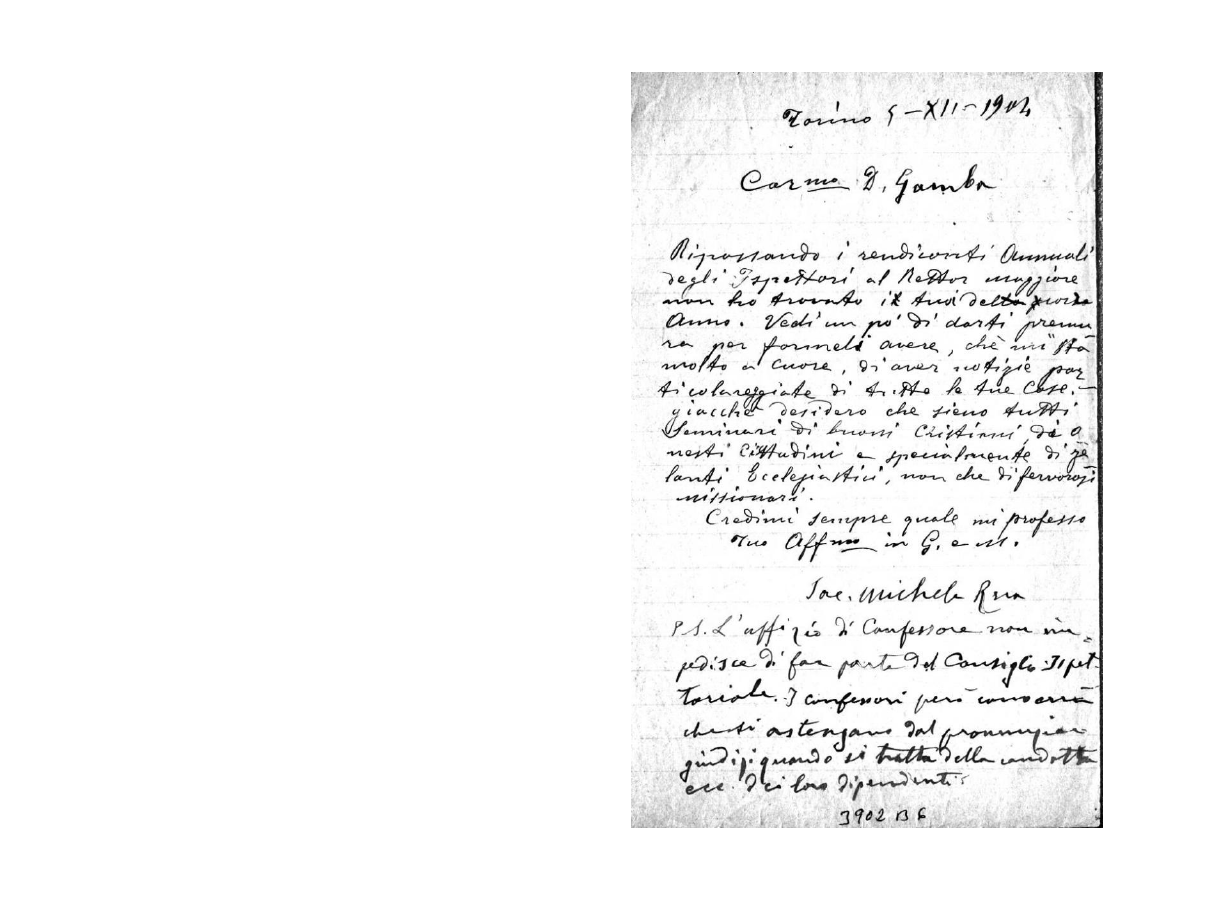 Torino 5-XII-1904
Car.mo D. Gamba
Ripassando i rendiconti Annuali
degli Ispettori al Rettor maggiore
non ho trovato il tuoi dello scorso
Anno. Vedi un po' di darti premu
ra per farmeli avere, chè mi sta
molto a cuore, di aver notizie par
ticolareggiate di tutte le tue Case.
giacchè desidero che sieno tutti
Seminari di buoni Cristiani, di o
nesti Cittadini e specialmente di ze
lanti Ecclesiastici, non che di fervorosi
missionari.
Credimi sempre quale mi professo
Tuo Aff.mo in G. e M.
Sac. Michele Rua
P.S. L'uffizio di Confessore non im=
pedisce di far parte del Consiglio Ispet
toriale. I confessori però converrà
che si astengano dal pronunziar
giudizi quando si tratta della condotta
ecc. dei loro dipendenti.
3902 B 6